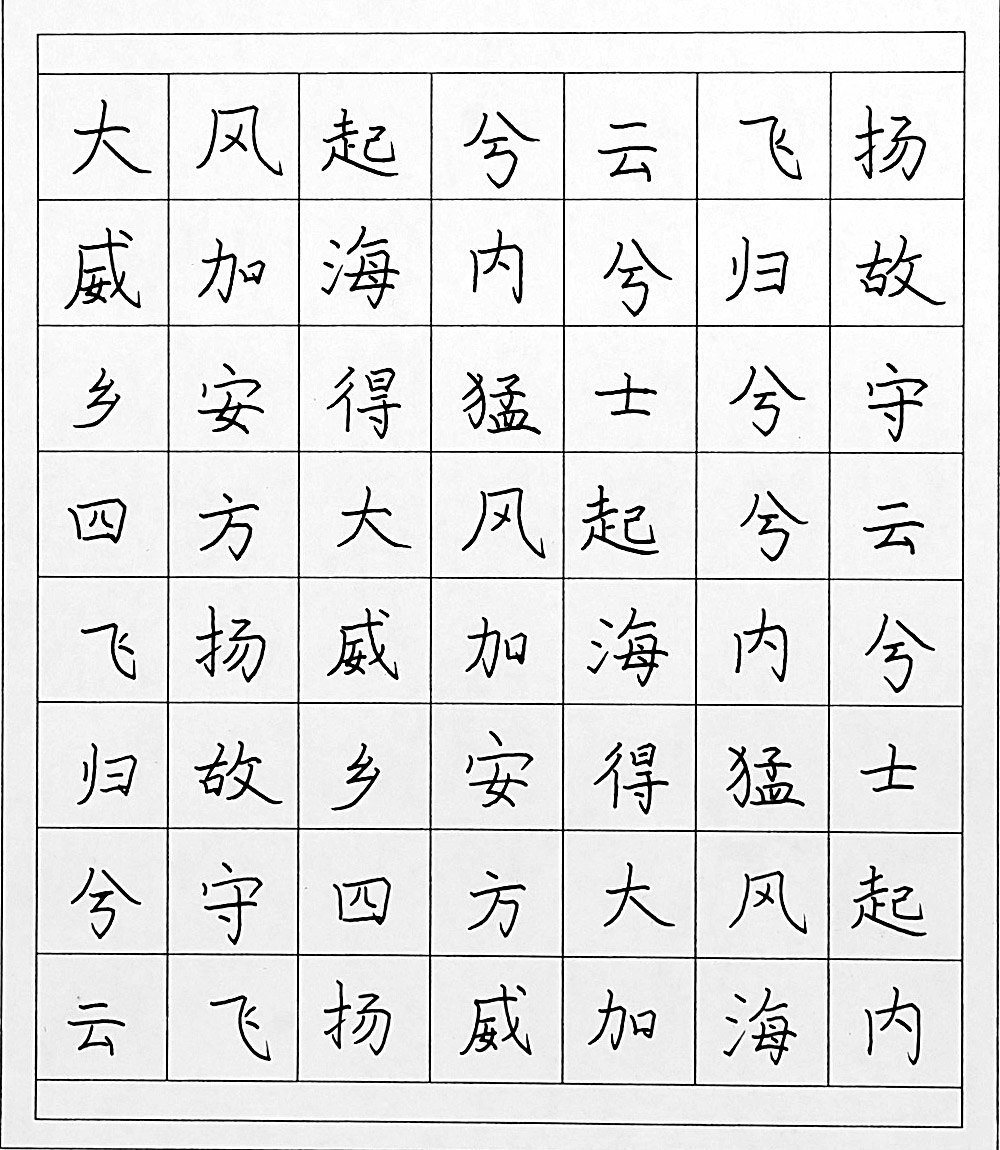 大风起兮云飞扬
威加海内兮归故
乡安得猛士兮守
四方大风起兮云
飞扬威加海内兮
归故乡安得猛士
兮守四方大风起
云飞扬威加海内